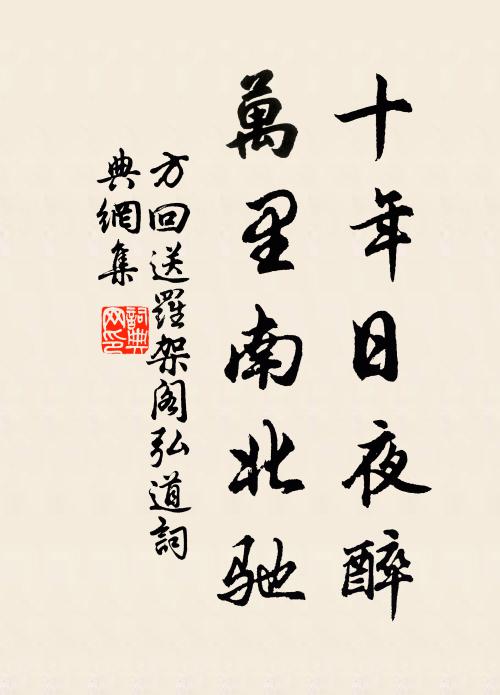 十年日夜醉
萬里南北馳
方回送羅架閣弘道詞
典網集
詞典网印